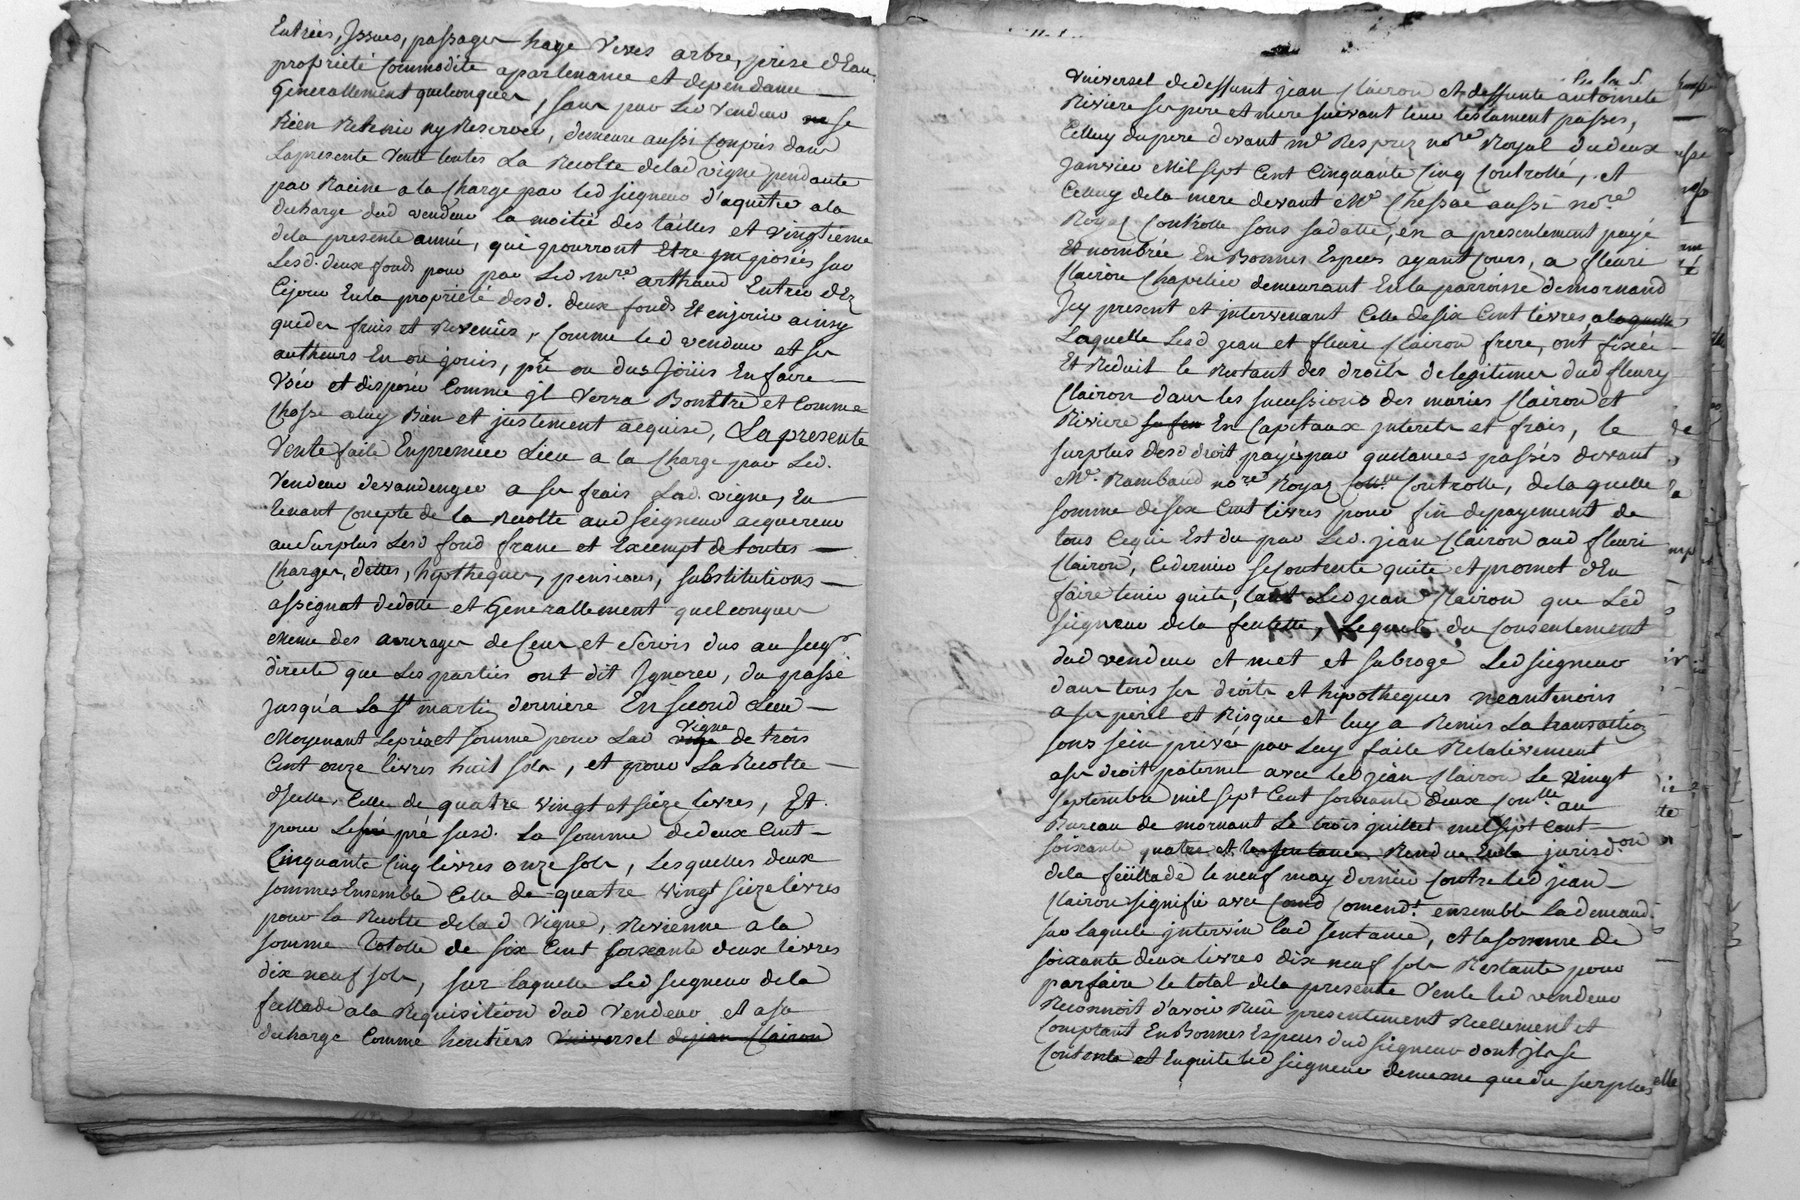 Entrées, Issues, passages haye vives arbre, prise d'Eau,
propriété Commodité apartenance et dependance
Generallement quelconques, sans par Led Vendeur ne se
Rien Retenir ny Reserver, demeure aussi Compris dans
Lapresente Vente toutes La Recolte delad vigne pendante
par Racine a la Charge par led seigneur d'aquitter ala
decharge dud vendeur la moitié des tailles et vingtieme
dela presente année, qui pourront Etre imposées sur
Lesd. deux fonds pour par Led mre arthaud Entrer dEz
Cejour Enla propriété desd. deux fonds Et enjouir ainsy
quedes fruis et Revenûs, Comme led vendeur et ses
autheurs En ont jouis, pû ou dus Joüis En faire
User et disposer Comme jl Verra Bontêtre et Comme
Chosse aluy Bien et justement acquise, La presente
Vente faite Enpremier Lieu a la Charge par Led.
Vendeur devandenger a ses frais Lad. vigne, En
tenant Compte de la Recolte aud seigneur acquereur
auSurplus Lesd fond franc et Exempt de toutes
Charges, dettes, hipotheques, pensions, substitutions
assignat dedotte et Generallement quelconques
meme des arrerages de Cens et Servis dus au seigr
directe que Les parties ont dit Ignorer, du passé
jusqu'a La St martin derniere En second Lieu
Moyenant Leprix et somme pour Lad vigne vigne de trois
Cent onze livres huit sols, et pour La Recolte
d'Icelle, Celle de quatre vingt et seize livres, Et
pour Le pré pré susd. La somme dedeux Cent
Cinquante Cinq livres onze sols, Lesquelles deux
sommes Ensemble Celle de quatre vingt seize livres
pour La Recolte delad Vigne, Revienne a la
somme totolle de six Cent soixante deux livres
dix neuf sols, sur laquelle Led seigneur dela
feuillade a la Requisition dud Vendeur et a sa
decharge Comme heritiers Universel dejean Clairon
Universel dedeffunt jean Clairon et deffunte antoinete
Riviere ses pere et mere suivant leur testament passés,
Celluy du pere devant Me Desprez nore Royal dudeux
janvier Mil sept Cent Cinquante Cinq Controllé, et
Celluy dela mere devant Me Chessae aussi nore
Royal Controlle sous sadatte, en a presentement payé
Et nombrée En Bonnes Especes ayant Cours, a fleuri
Clairon Chapelier demeurant Enla parroisse demornand
Icy present et intervenant Celle desix Cent livres, alaquelle
Laquelle Lesd jean et fleuri Clairon frere, ont fixée
Et Reduit le Restant des droits delegitimes dud fleury
Clairon dans les sucessions des maries Clairon et
Riviere En Capitaux interets et frais, le
surplus desd droit payés par quitances passés devant
Me. Rambaud nore Royal Controlle, delaquelle
somme desix Cent livres pour fin depayement de
tous Ceque Est du par Led. jean Clairon aud fleuri
Clairon, Cedernier secontente quite et promet dEn
faire tenir quite, tant Led jean Clairon que Led
seigneur dela feulette, Lequel du Consentement
dud vendeur et met et subroge Led seigneur
dans tous ses droits et hipotheques neantmoins
a ses péril et Risque et luy a Remis La transaction
sous sein privée par Luy faite Relativement
a ses droit paternel avec led jean Clairon le vingt
septembre mil sept Cent soixante deux Conllé au
Bureau de mornant Le trois juillet mil sept Cent
soixante quatre et la sentance Rendue Enla jurisdon
dela feüillade le neuf may dernier Contre led jean
Clairon signifié avec Comd Comendt ensemble La demand.
sur laquele intervin lad sentance, et la somme de
soixante deux livres dix neuf sols Restante pour
parfaire le total dela presente Vente led vendeur
Reconnoit d'avoir Reçû presentement Reellement et
Comptant EnBonnes Especes dud seigneur dont jl se
Contente et Enquite led seigneur dememe que du surplus